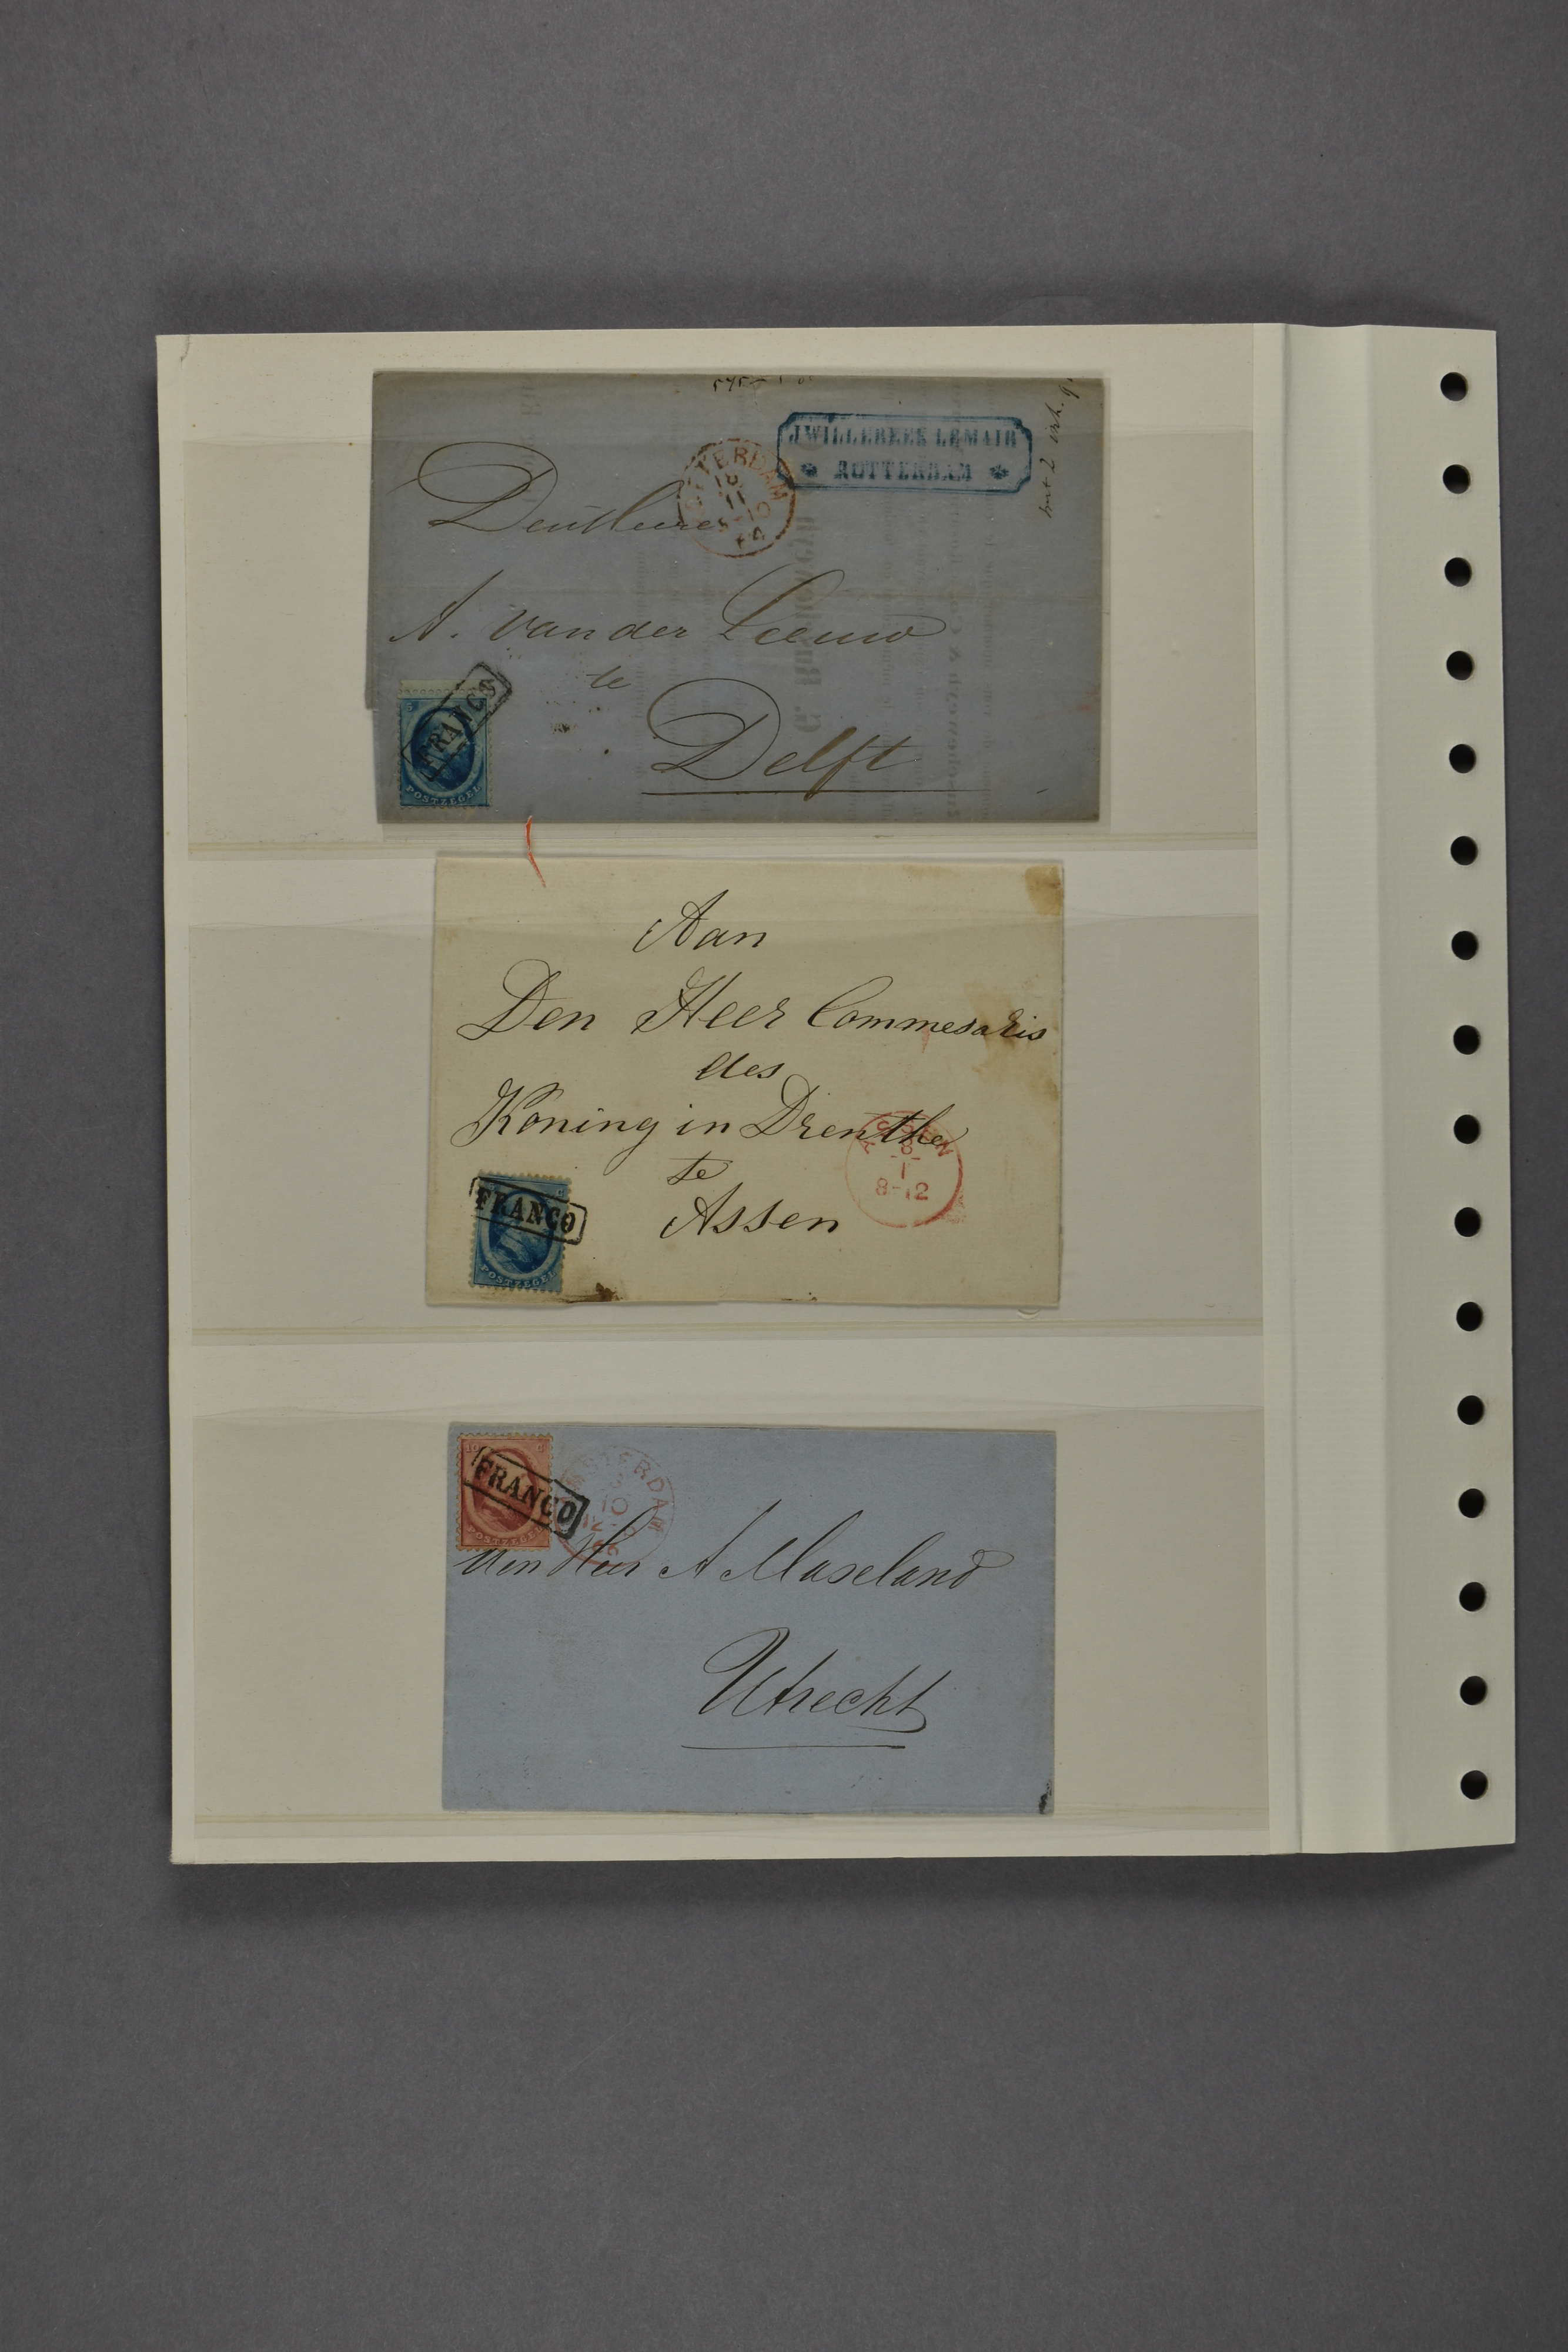 J. WILLEBEEK LEMAIR
ROTTERDAM
ROTTERDAM
18
11
64
A. van der Leeuw
te
Delft
5
FRANCO
POSTZEGEL
Aan
Den Heer Commesaris
des
Koning in Drenthe
te
Assen
ASSEN
8
1
8-12
FRANCO
POSTZEGEL
10 C
FRANCO
POSTZEGEL
AMSTERDAM
10
66
den Heer A Maseland
Utrecht